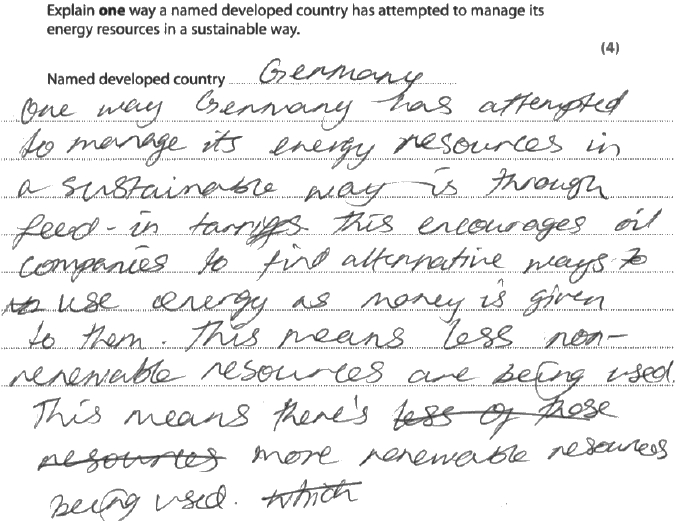 Explain one way a named developed country has attempted to manage its
energy resources in a sustainable way.
(4)
Named developed country Germany
One way Germany has attempted
to manage its energy resources in
a sustainable way is through
feed-in tarriffs this encourages oil
companies to find alternative ways to
use energy as money is given
to them. This means less non-
renewable resources are being used.
This means there's less of those
resources more renewable resources
being used. which